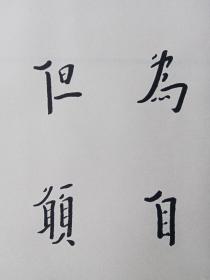 為自
但願